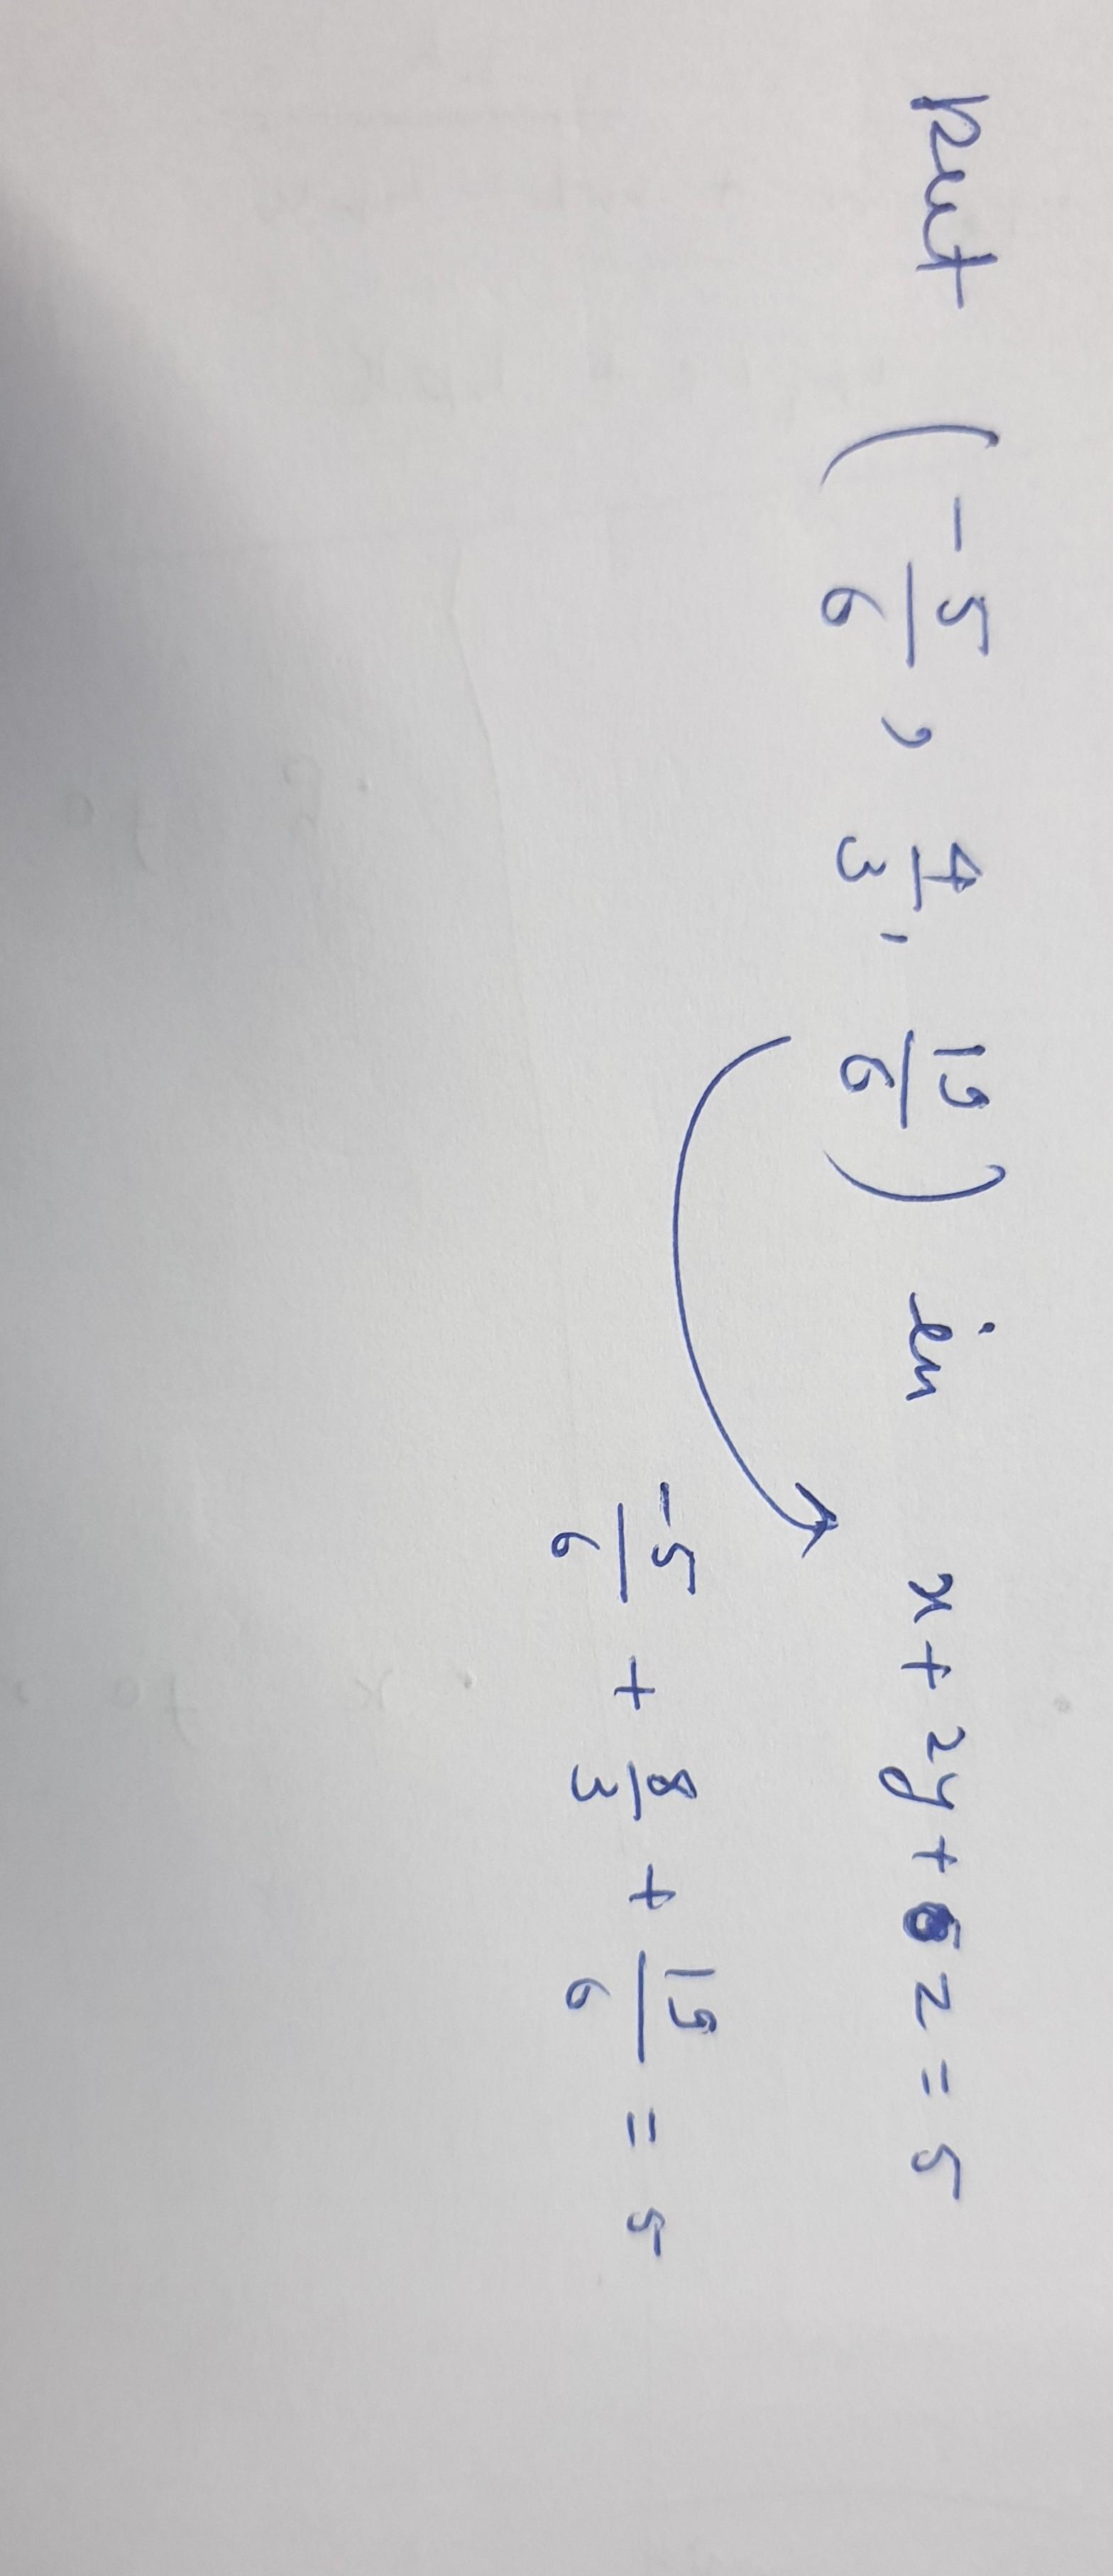 put (-5/6, 4/3, 19/6) in x + 2y + z = 5
-5/6 + 8/3 + 19/6 = 5